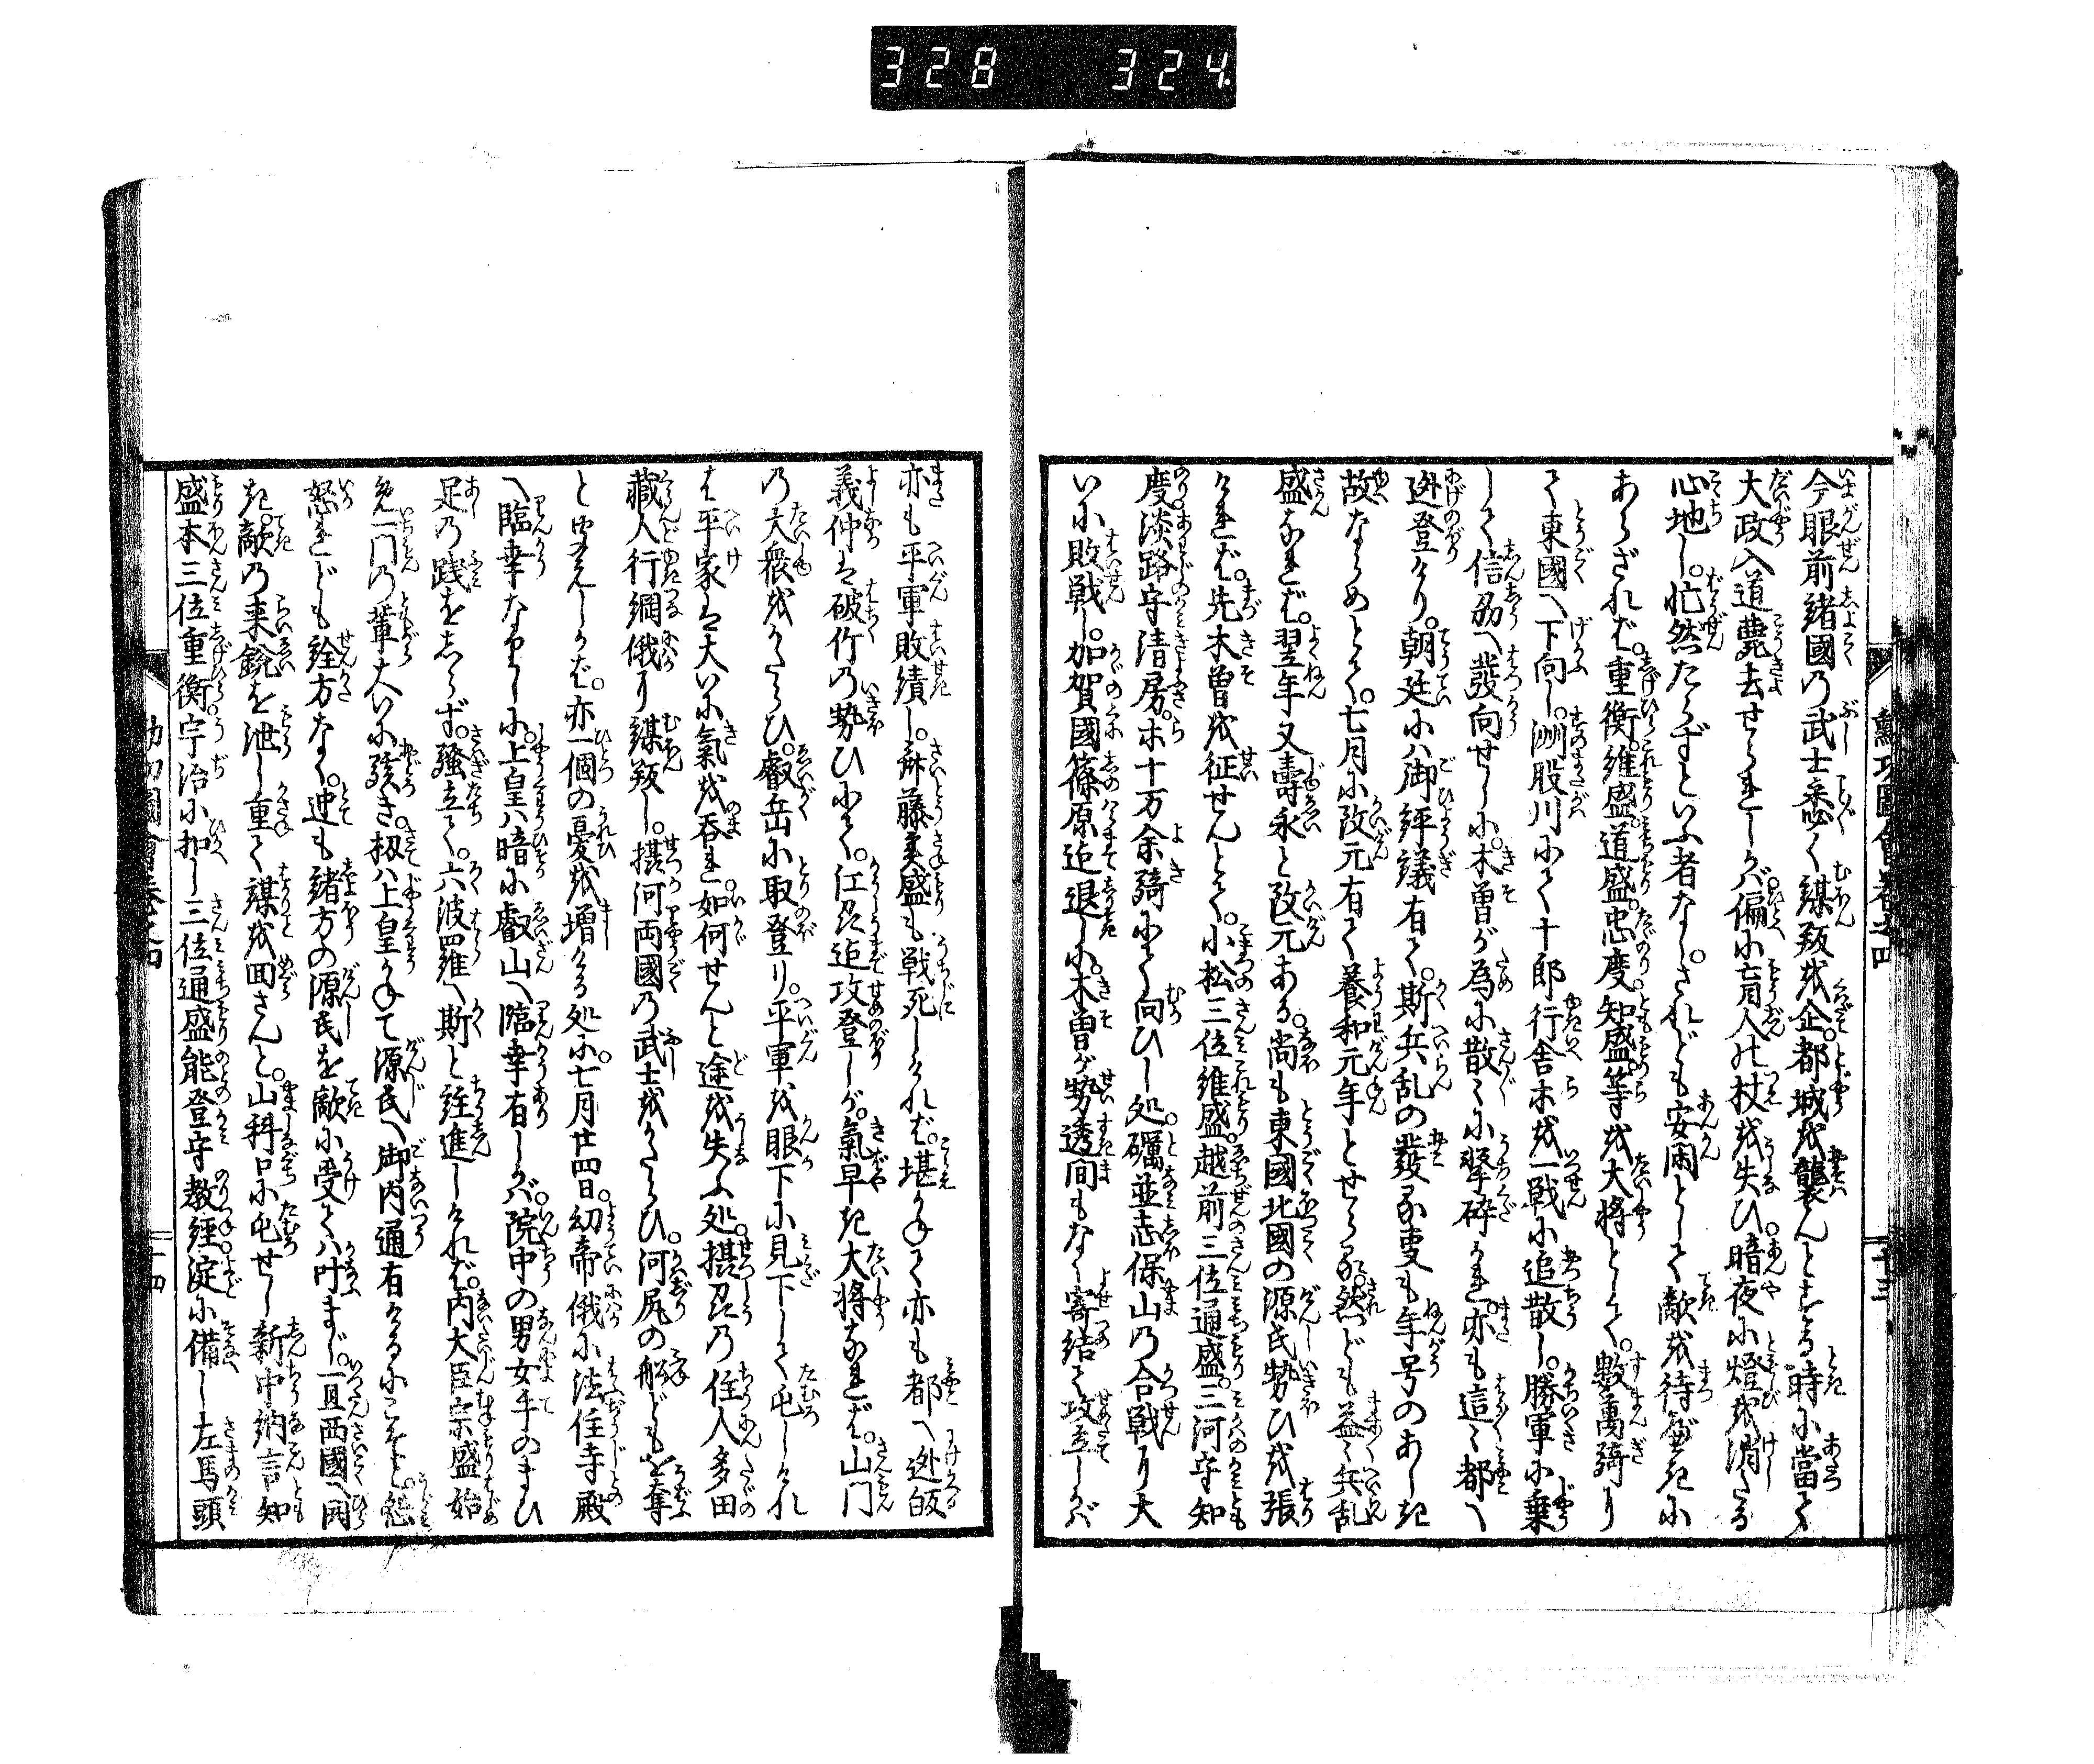 328 324
今眼前諸國乃武士悉く謀叛越企。都城越襲んとする時小當て
大政入道薨去せられしかバ。偏小盲人の杖越失ひ。暗夜小燈越消たる
心地し。忙然たらずといふ者なし。されども安閑として敵越待べき小
あらざれば。重衡。維盛。道盛。忠度。知盛。等越大将として。數萬騎り
て東國へ下向し。洲股川小て十郎行舎ホ越一戦小追散し。勝軍小乗
して信州へ發向せし小。木曽が為小散〻小撃砕かれ。亦も這〻都へ
迯登けり。朝廷小ハ御評議有て。斯兵乱の發る叓も年号のあしき
故ならめとて。七月小改元有て養和元年とせらる。然ども益〻兵乱
盛なれば。翌年又壽永と改元ある。尚も東國北國の源氏勢ひ越張
ければ。先木曽越征せんとて。小松三位維盛。越前三位通盛。三河守知
度。淡路守清房。ホ十万余騎小て向ひし処。礪並志保山の合戦り大
い小敗戦し。加賀國篠原迄退し小。木曽が勢透間もなく寄結て攻立しかバ
亦も平軍敗績し。斎藤実盛も戦死しければ。堪かねて亦も都へ迯皈
義仲ハ破竹の勢ひ小て。江州迄攻登しが。氣早き大将なれば。山門
乃大衆越かたらひ。叡岳小取登り。平軍越眼下小見下して屯しけれ
ば平家ハ大い小氣越呑れ。如何せんと途越失ふ処。摂州乃住人多田
藏人行綱俄り謀叛し。摂河両國の武士越かたらひ。河尻の船ども越奪
と聞えしかば。亦一個の憂越増ける処小。七月廿四日。幼帝俄小法住寺殿
へ臨幸なりし小。上皇ハ暗小叡山へ臨幸有しかバ。院中の男女手のまひ
足の踐をしらず。騒立て。六波羅へ斯と註進しければ。内大臣宗盛始
め一門の輩大い小驚き。扨ハ上皇かねて源氏へ御内通有ける小こそと。怨
怒れども詮方なく。迚も諸方の源氏を敵小受てハ叶まじ。一旦西國へ開
き。敵の来鋭を泄し重て謀越囬さんと。山科口小屯せし新中納言知
盛本三位重衡宇治小扣し三位通盛能登守教経淀小備し左馬頭